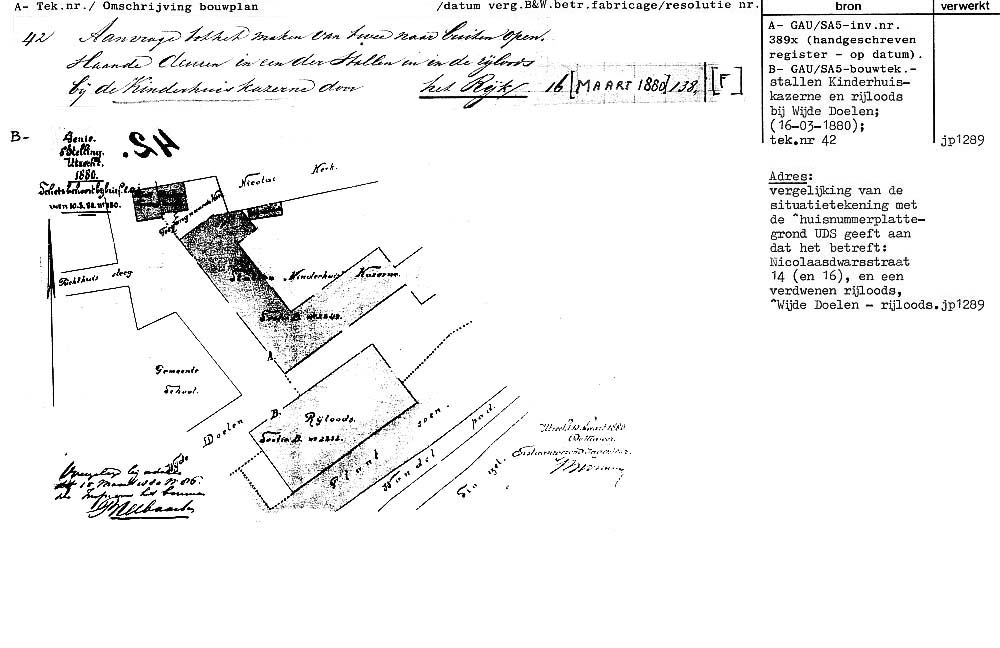 A- Tek.nr./ Omschrijving bouwplan /datum verg.B&W.betr.fabricage/resolutie nr.
bron
verwerkt
42 Aanvrage tot het maken van twee naar buiten open.
slaande deuren in een der Stallen en in de rijloods
bij de Kinderhuiskazerne door het Rijk 16 [MAART 1880] 138, [F]
A- GAU/SA5-inv.nr.
389x (handgeschreven
register - op datum).
B- GAU/SA5-bouwtek.-
stallen Kinderhuis-
kazerne en rijloods
bij Wijde Doelen;
(16-03-1880);
tek.nr 42
jp1289
Adres:
vergelijking van de
situatietekening met
de ^huisnummerplatte-
grond UDS geeft aan
dat het betreft:
Nicolaasdwarsstraat
14 (en 16), en een
verdwenen rijloods,
^Wijde Doelen - rijloods.jp1289
B-
42.
Stelling
Utrecht.
1880.
Nicolai Kerk.
Kinderhuis Kazerne
Sectie B.
Rechthuis steeg
A.
Gemeente
School.
B.
Rijloods.
Sectie B.
Wijde Doelen
Plant soen.
Wandel pad.
Singel.